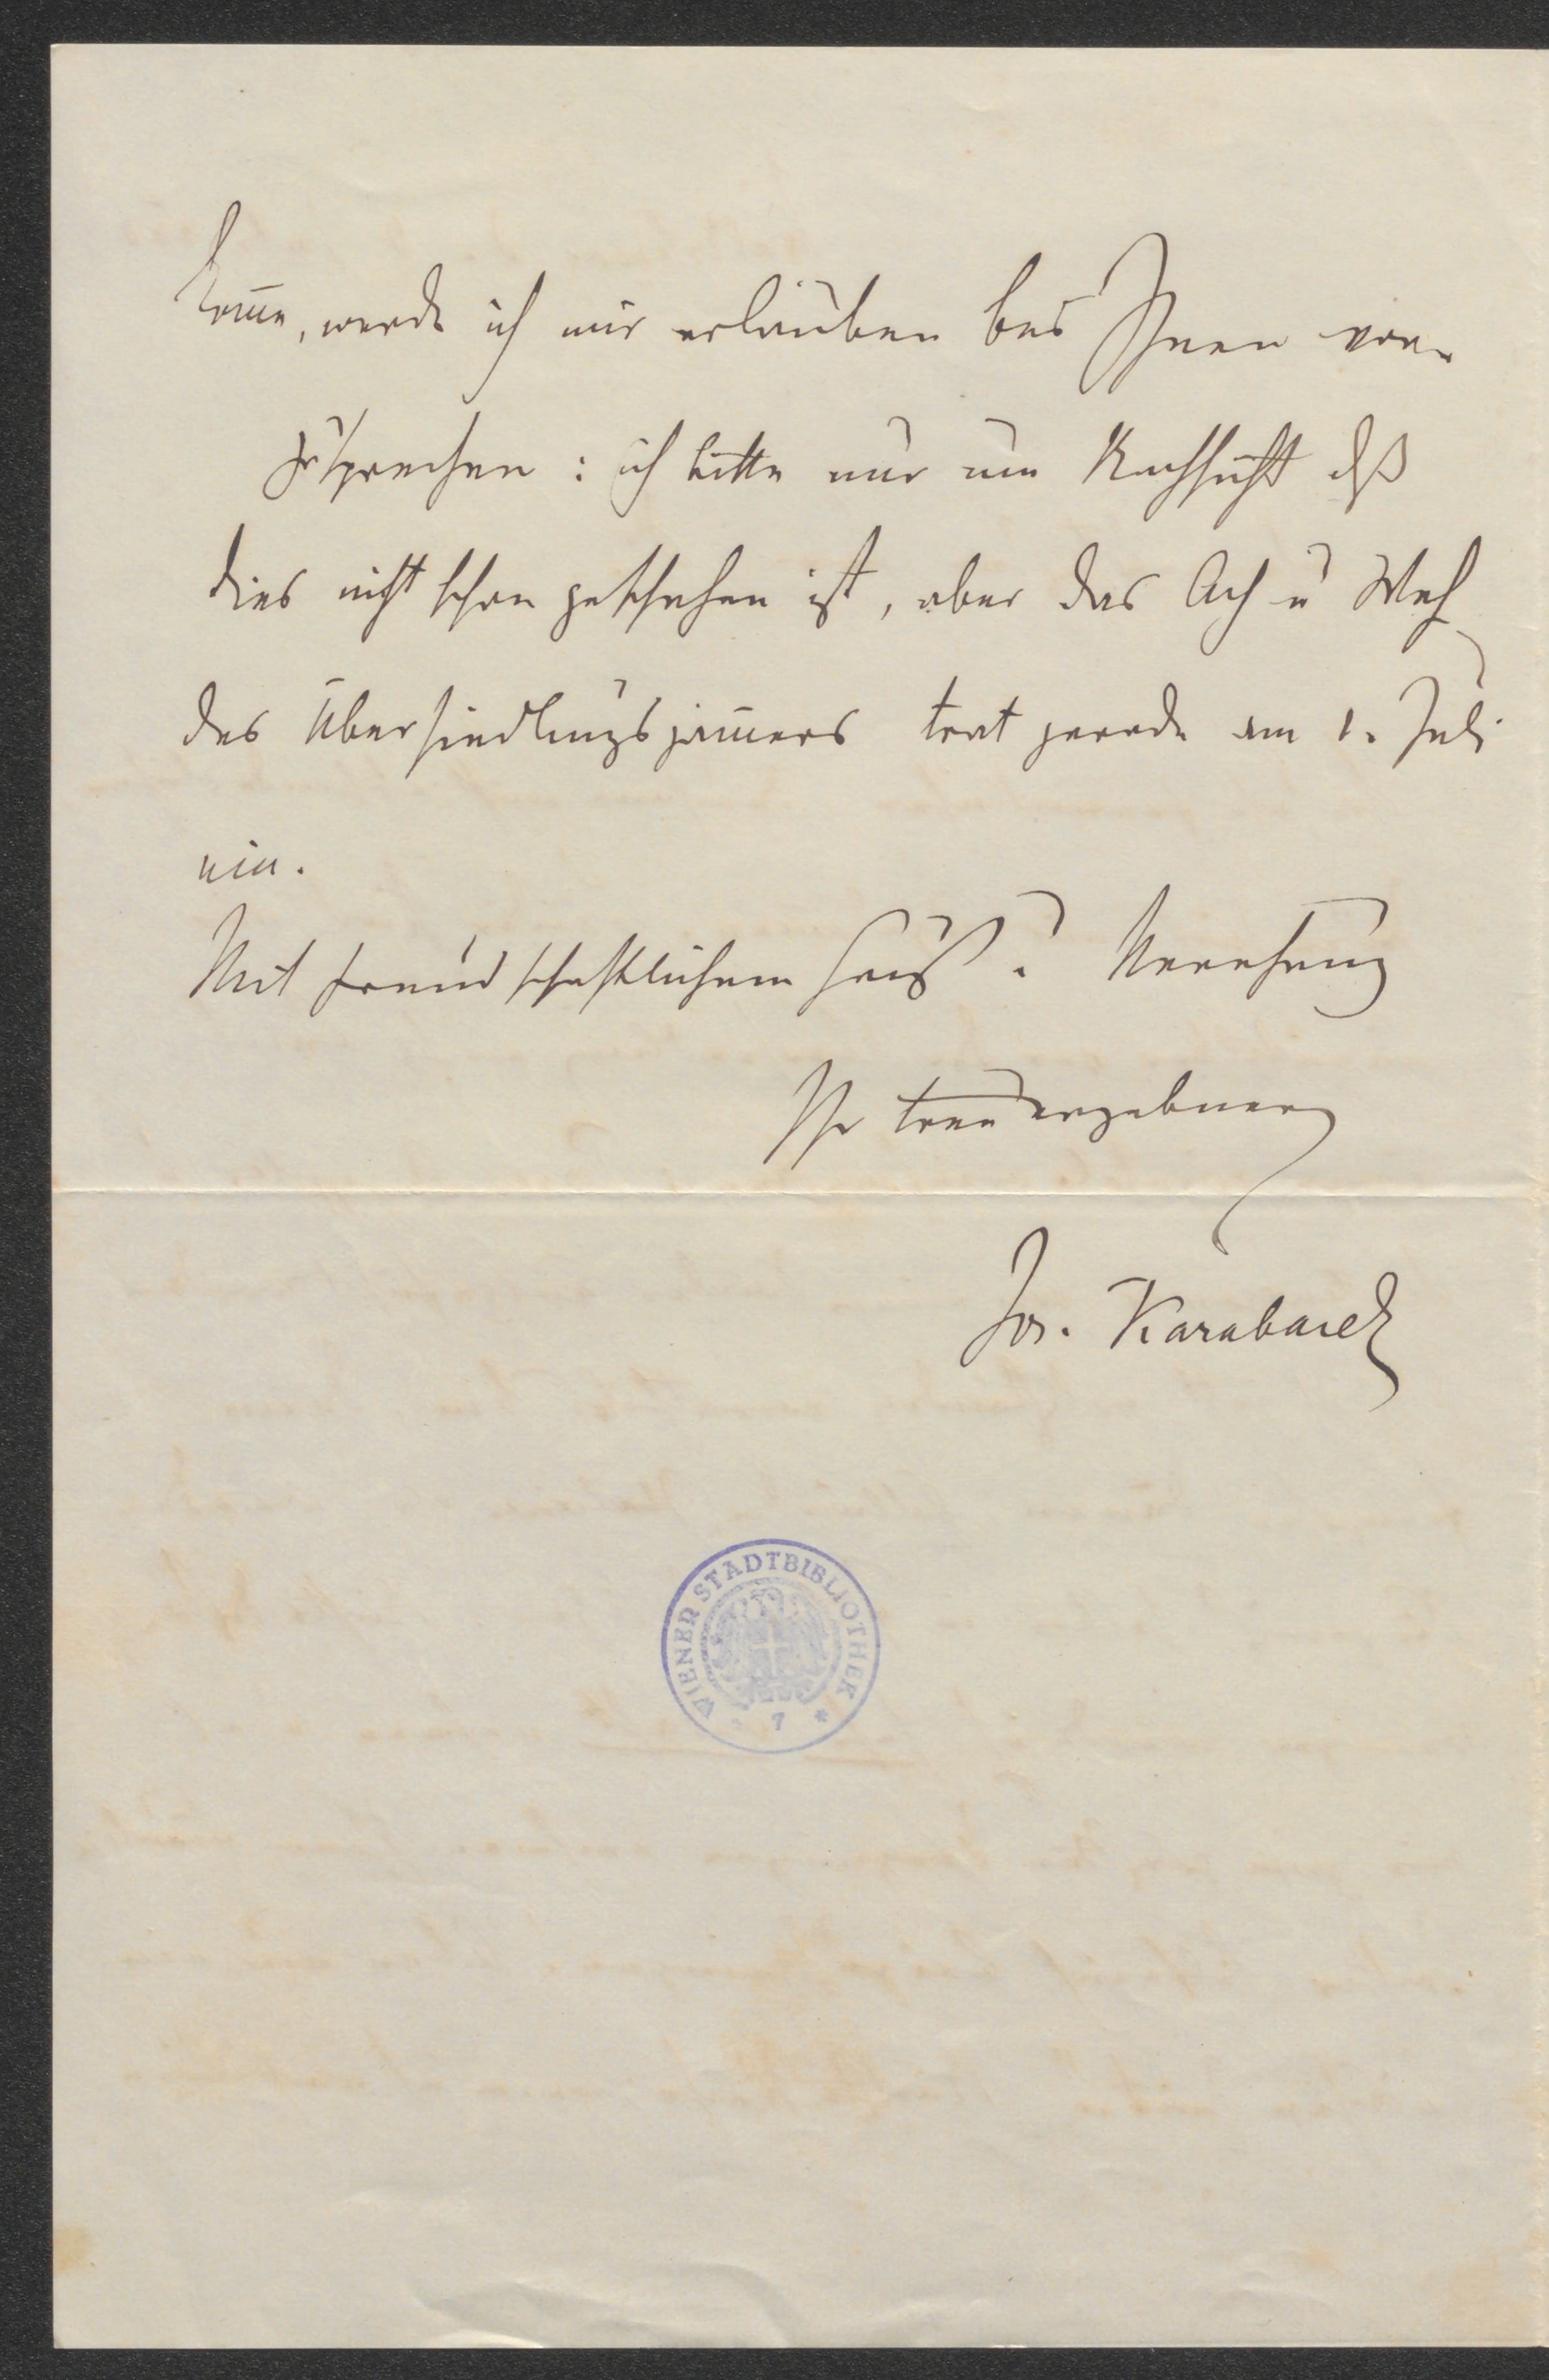 kom̅e, werde ich mir erlauben bei Ihnen vor-
zusprechen: ich bitte nur um Nachsicht dß
dies nicht schon geschehen ist, aber das Ach u Weh
des Übersiedlungsjam̅ers trat gerade am 1. Juli
ein.
Mit freundschaftlichem Gruß u Verehrung
Ihr treuergebener
Jos. Karabacek
WIENER STADTBIBLIOTHEK
* 7 *